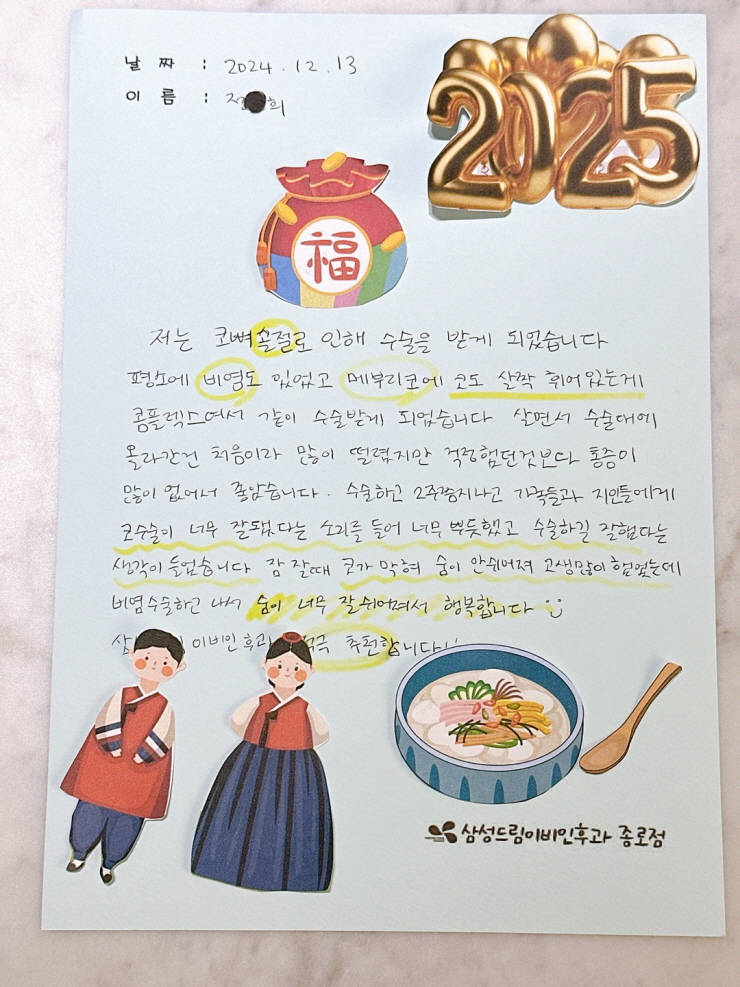 날 짜 : 2024. 12. 13
이 름 : 정 희
2025
福
저는 코뼈골절로 인해 수술을 받게 되었습니다
평소에 비염도 있었고 메부리코에 코도 살짝 휘어있는게
콤플렉스여서 같이 수술받게 되었습니다 살면서 수술대에
올라간건 처음이라 많이 떨렸지만 걱정했던것보다 통증이
많이 없어서 좋았습니다. 수술하고 2주쯤지나고 가족들과 지인들에게
코수술이 너무 잘됐다는 소리를 들어 너무 뿌듯했고 수술하길 잘했다는
생각이 들었습니다 잠 잘때 코가 막혀 숨이 안쉬어져 고생많이 했었는데
비염수술하고 나서 숨이 너무 잘쉬어져서 행복합니다
이비인후과 추천합니다!!
삼성드림이비인후과 종로점